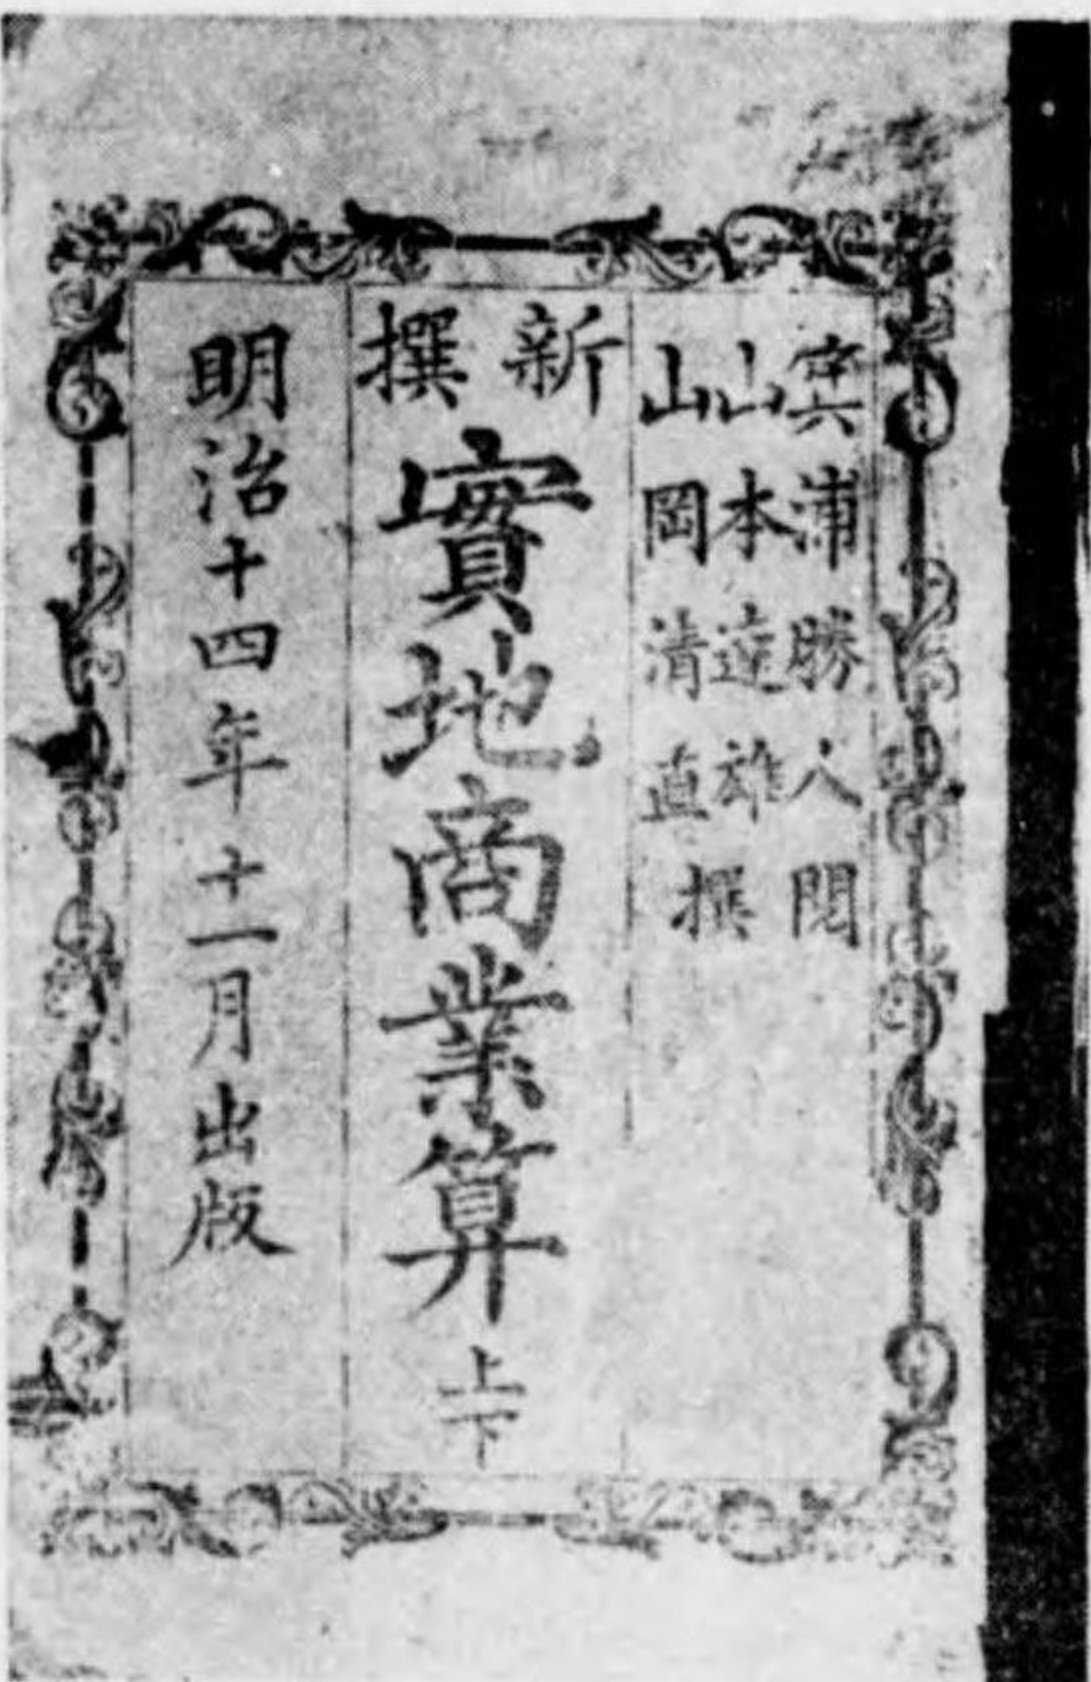 箕浦勝人閲
山本達雄
山岡清直
撰
新撰
實地商業算 上下
明治十四年十一月出版